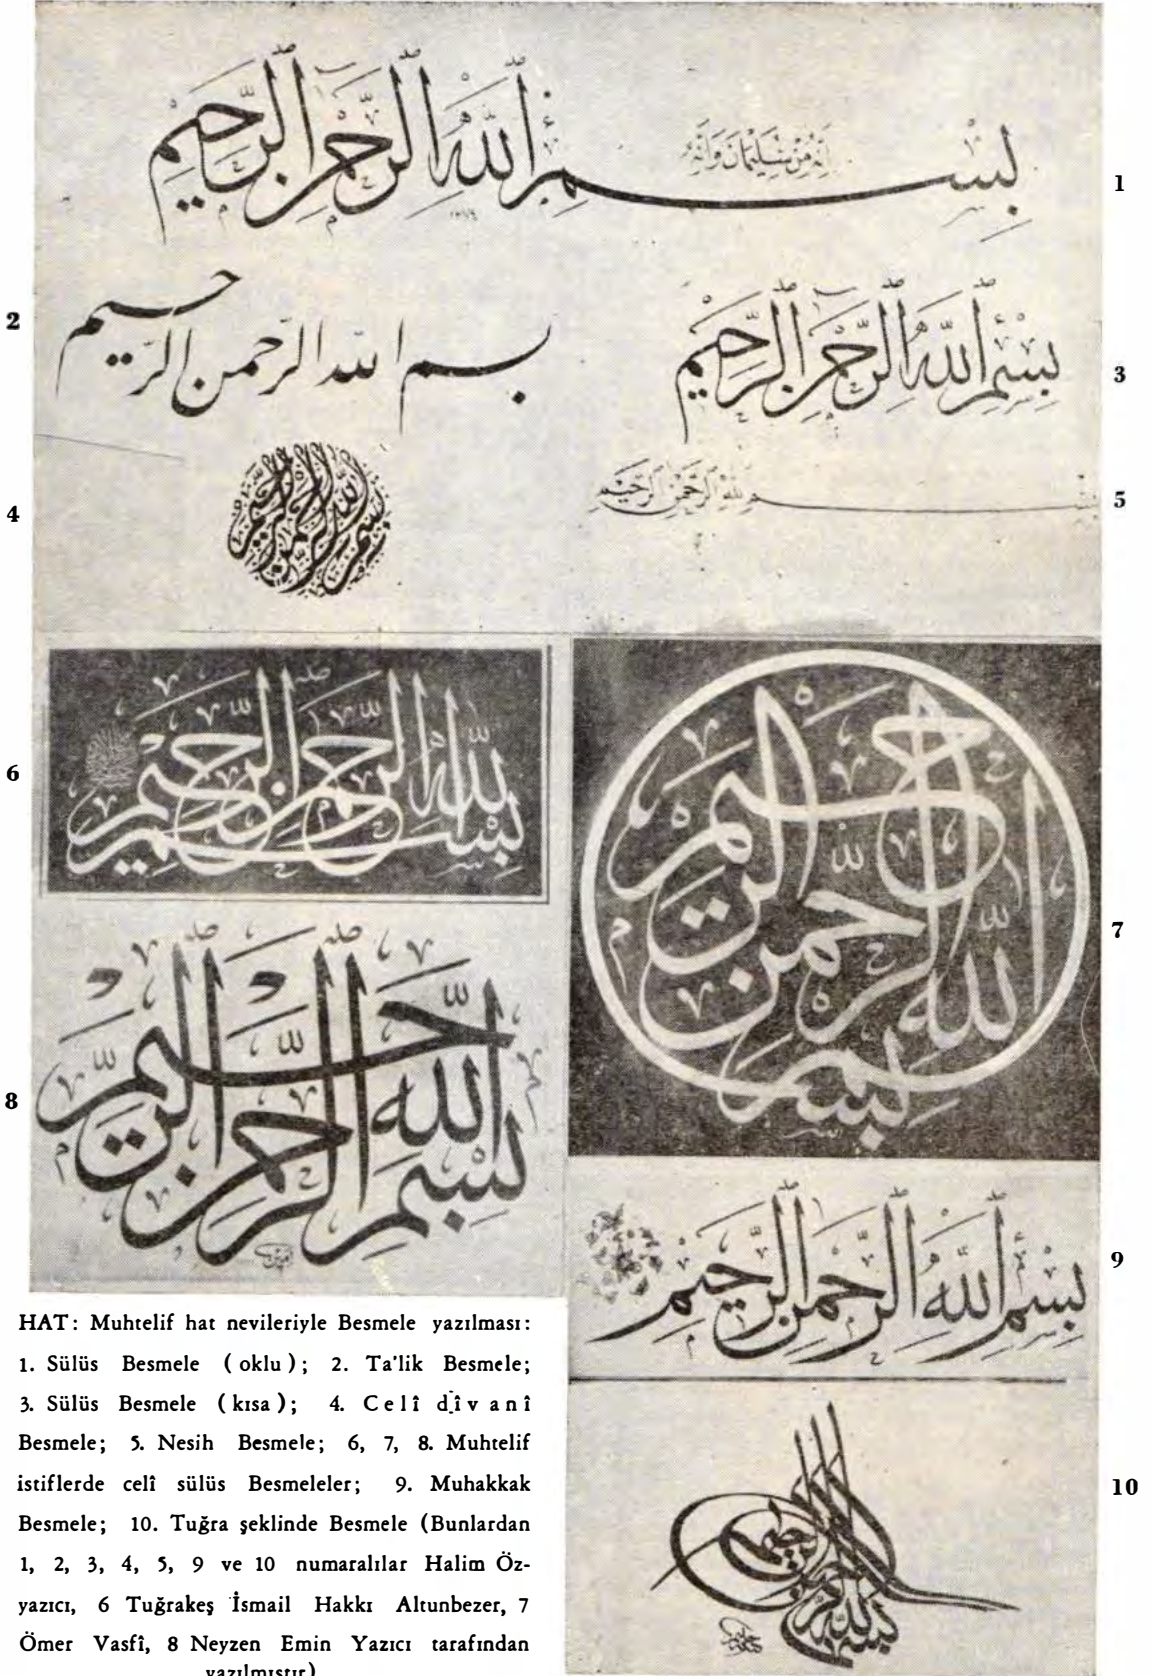 بسم الله الرحمن الرحيم
انه من سليمان وانه
1
بسم الله الرحمن الرحيم
2
بسم الله الرحمن الرحيم
3
بسم الله الرحمن الرحيم
4
بسم الله الرحمن الرحيم
5
بسم الله الرحمن الرحيم
6
بسم الله الرحمن الرحيم
7
بسم الله الرحمن الرحيم
8
بسم الله الرحمن الرحيم
9
بسم الله الرحمن الرحيم
10
HAT: Muhtelif hat nevileriyle Besmele yazılması:
1. Sülüs Besmele (oklu); 2. Ta'lik Besmele;
3. Sülüs Besmele (kısa); 4. Celî dîvanî
Besmele; 5. Nesih Besmele; 6, 7, 8. Muhtelif
istiflerde celî sülüs Besmeleler; 9. Muhakkak
Besmele; 10. Tuğra şeklinde Besmele (Bunlardan
1, 2, 3, 4, 5, 9 ve 10 numaralılar Halim Öz-
yazıcı, 6 Tuğrakeş İsmail Hakkı Altunbezer, 7
Ömer Vasfî, 8 Neyzen Emin Yazıcı tarafından
yazılmıştır)